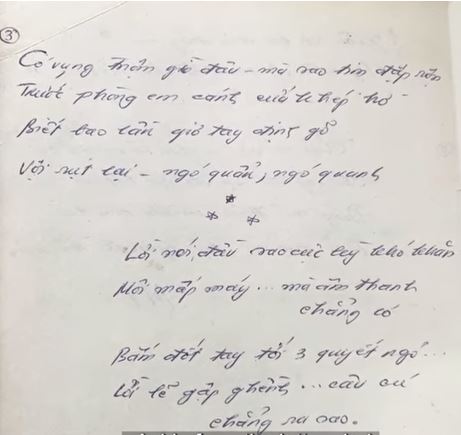 3
Có vụng trộm gì đâu - mà sao tim đập rộn
Trước phòng em cánh cửa khép hờ
Biết bao lần giơ tay định gõ
Vội rút lại - ngó quẩn, ngó quanh
* * *
Lời nói đầu sao cực kỳ khó khăn
Môi mấp máy ... mà âm thanh
chẳng có
Bấm đốt tay tới 3 quyết ngỏ ...
Lời lẽ gập ghềnh ... câu cú
chẳng ra sao.